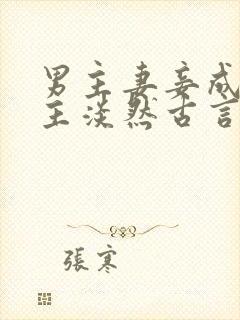 男主妻妾成
主淡然古言
張寒